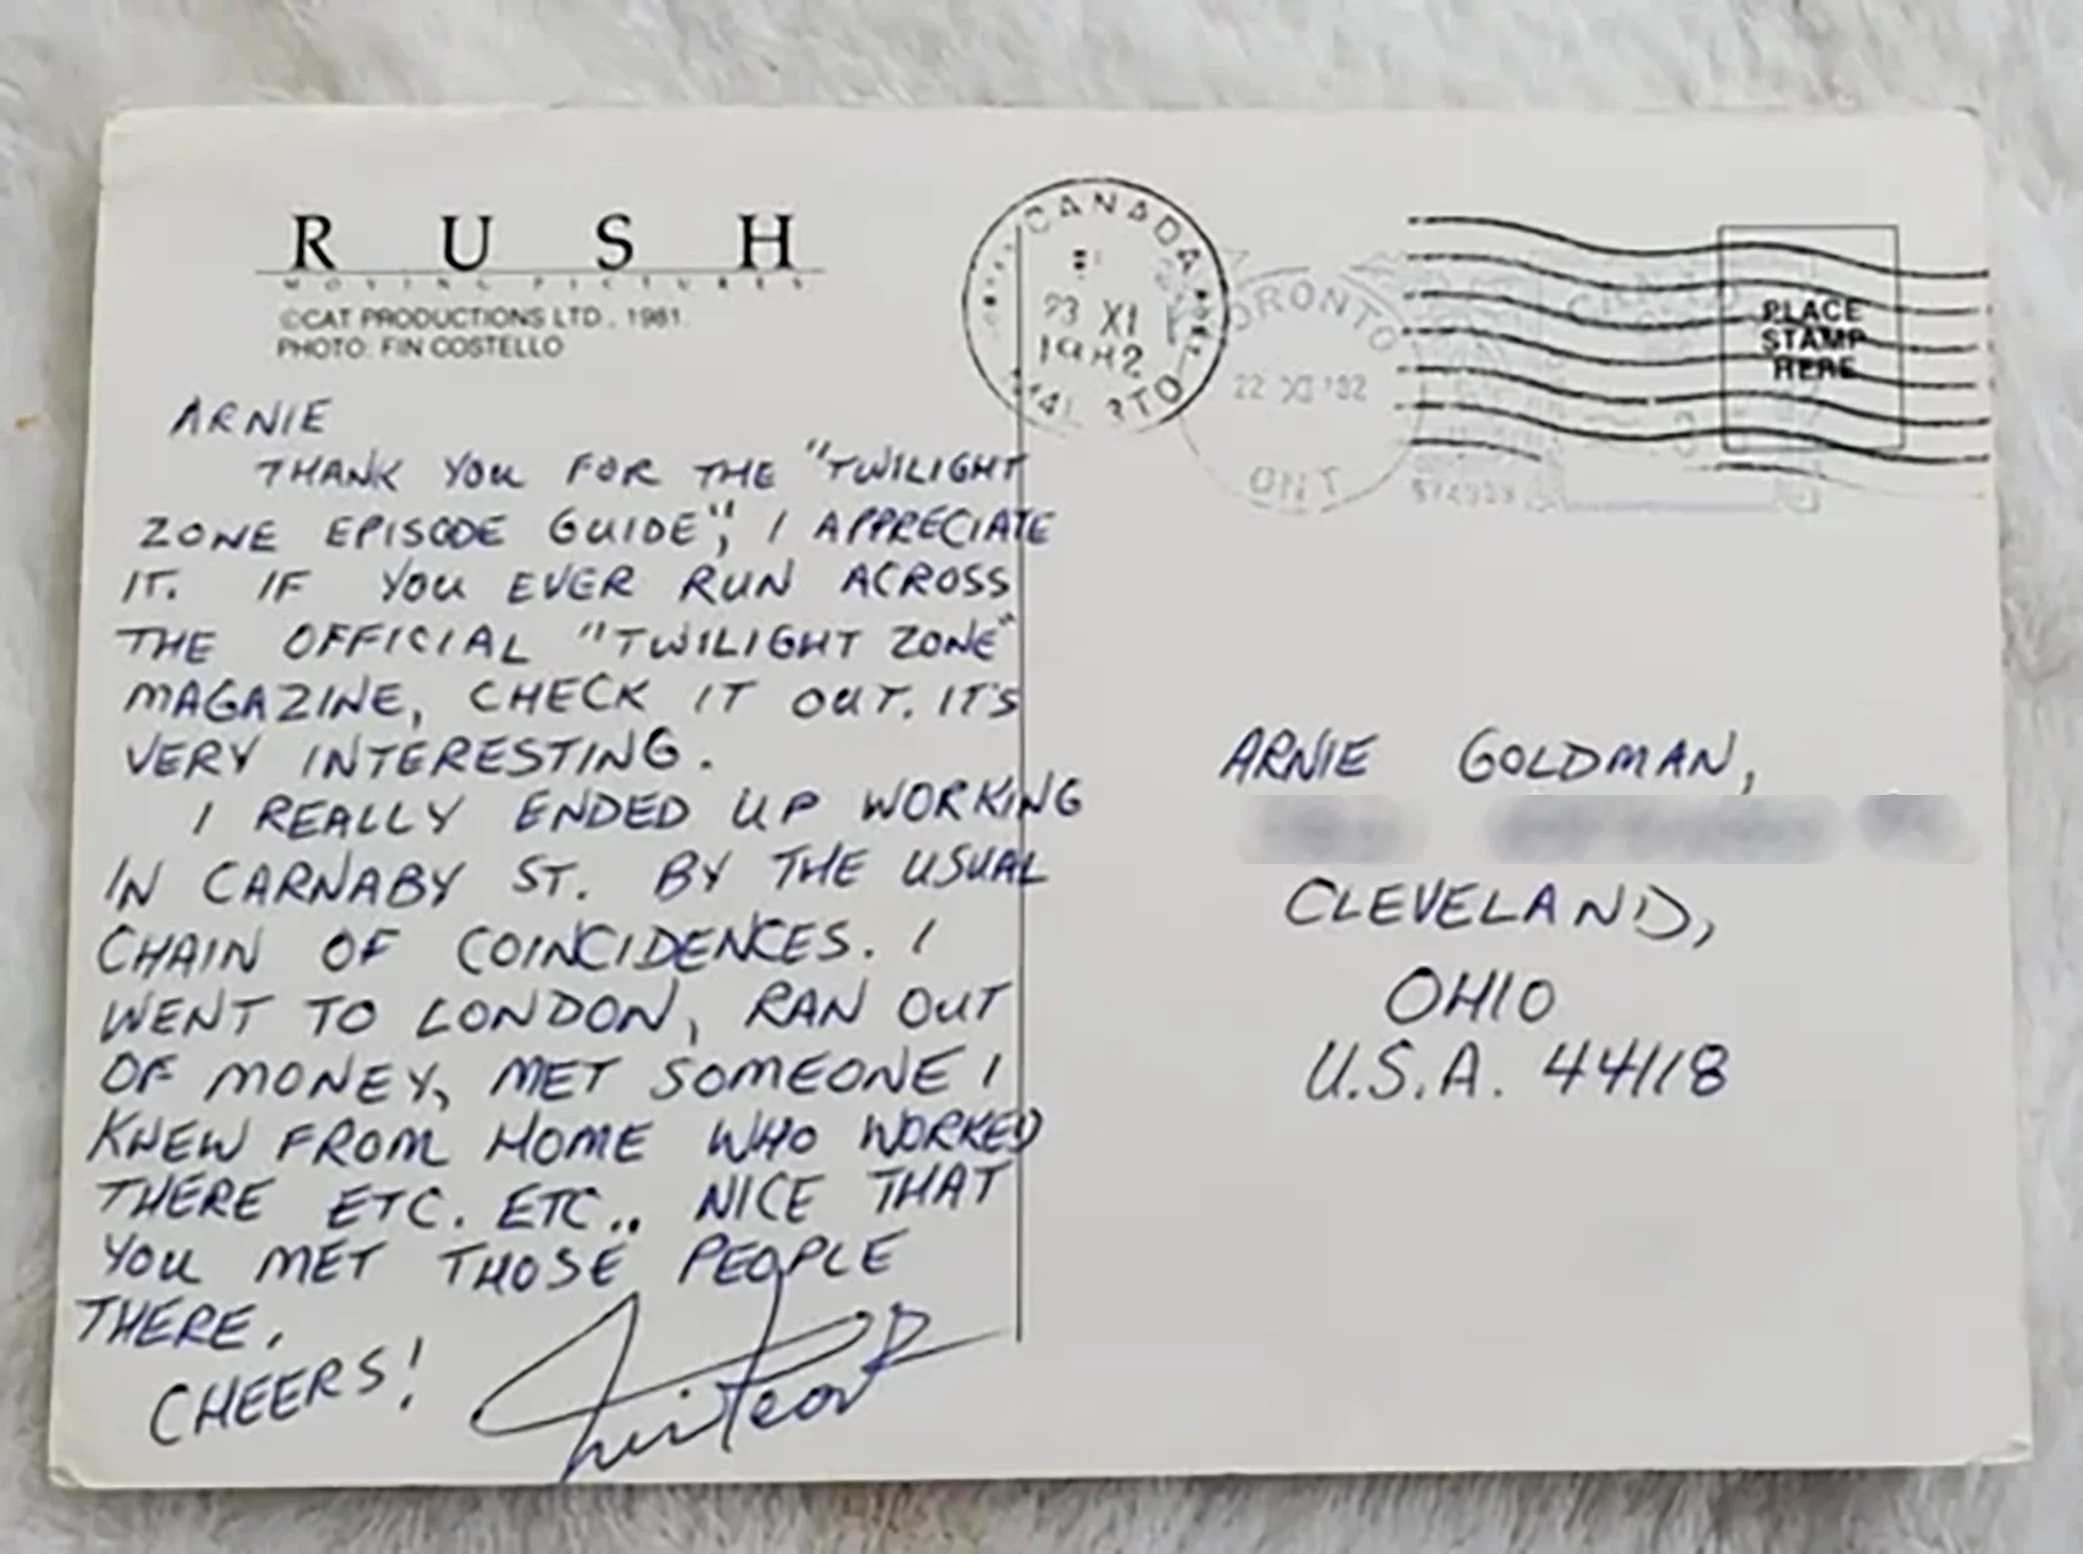 RUSH
MOVING PICTURES
©CAT PRODUCTIONS LTD., 1981.
PHOTO: FIN COSTELLO
ARNIE
THANK YOU FOR THE "TWILIGHT
ZONE EPISODE GUIDE", I APPRECIATE
IT. IF YOU EVER RUN ACROSS
THE OFFICIAL "TWILIGHT ZONE"
MAGAZINE, CHECK IT OUT. IT'S
VERY INTERESTING.
I REALLY ENDED UP WORKING
IN CARNABY ST. BY THE USUAL
CHAIN OF COINCIDENCES. I
WENT TO LONDON, RAN OUT
OF MONEY, MET SOMEONE I
KNEW FROM HOME WHO WORKED
THERE ETC. ETC.. NICE THAT
YOU MET THOSE PEOPLE
THERE.
CHEERS!
CANADA
23 XI
1982
TORONTO
22 XI '82
ONT
PLACE
STAMP
HERE
ARNIE GOLDMAN,
CLEVELAND,
OHIO
U.S.A. 44118